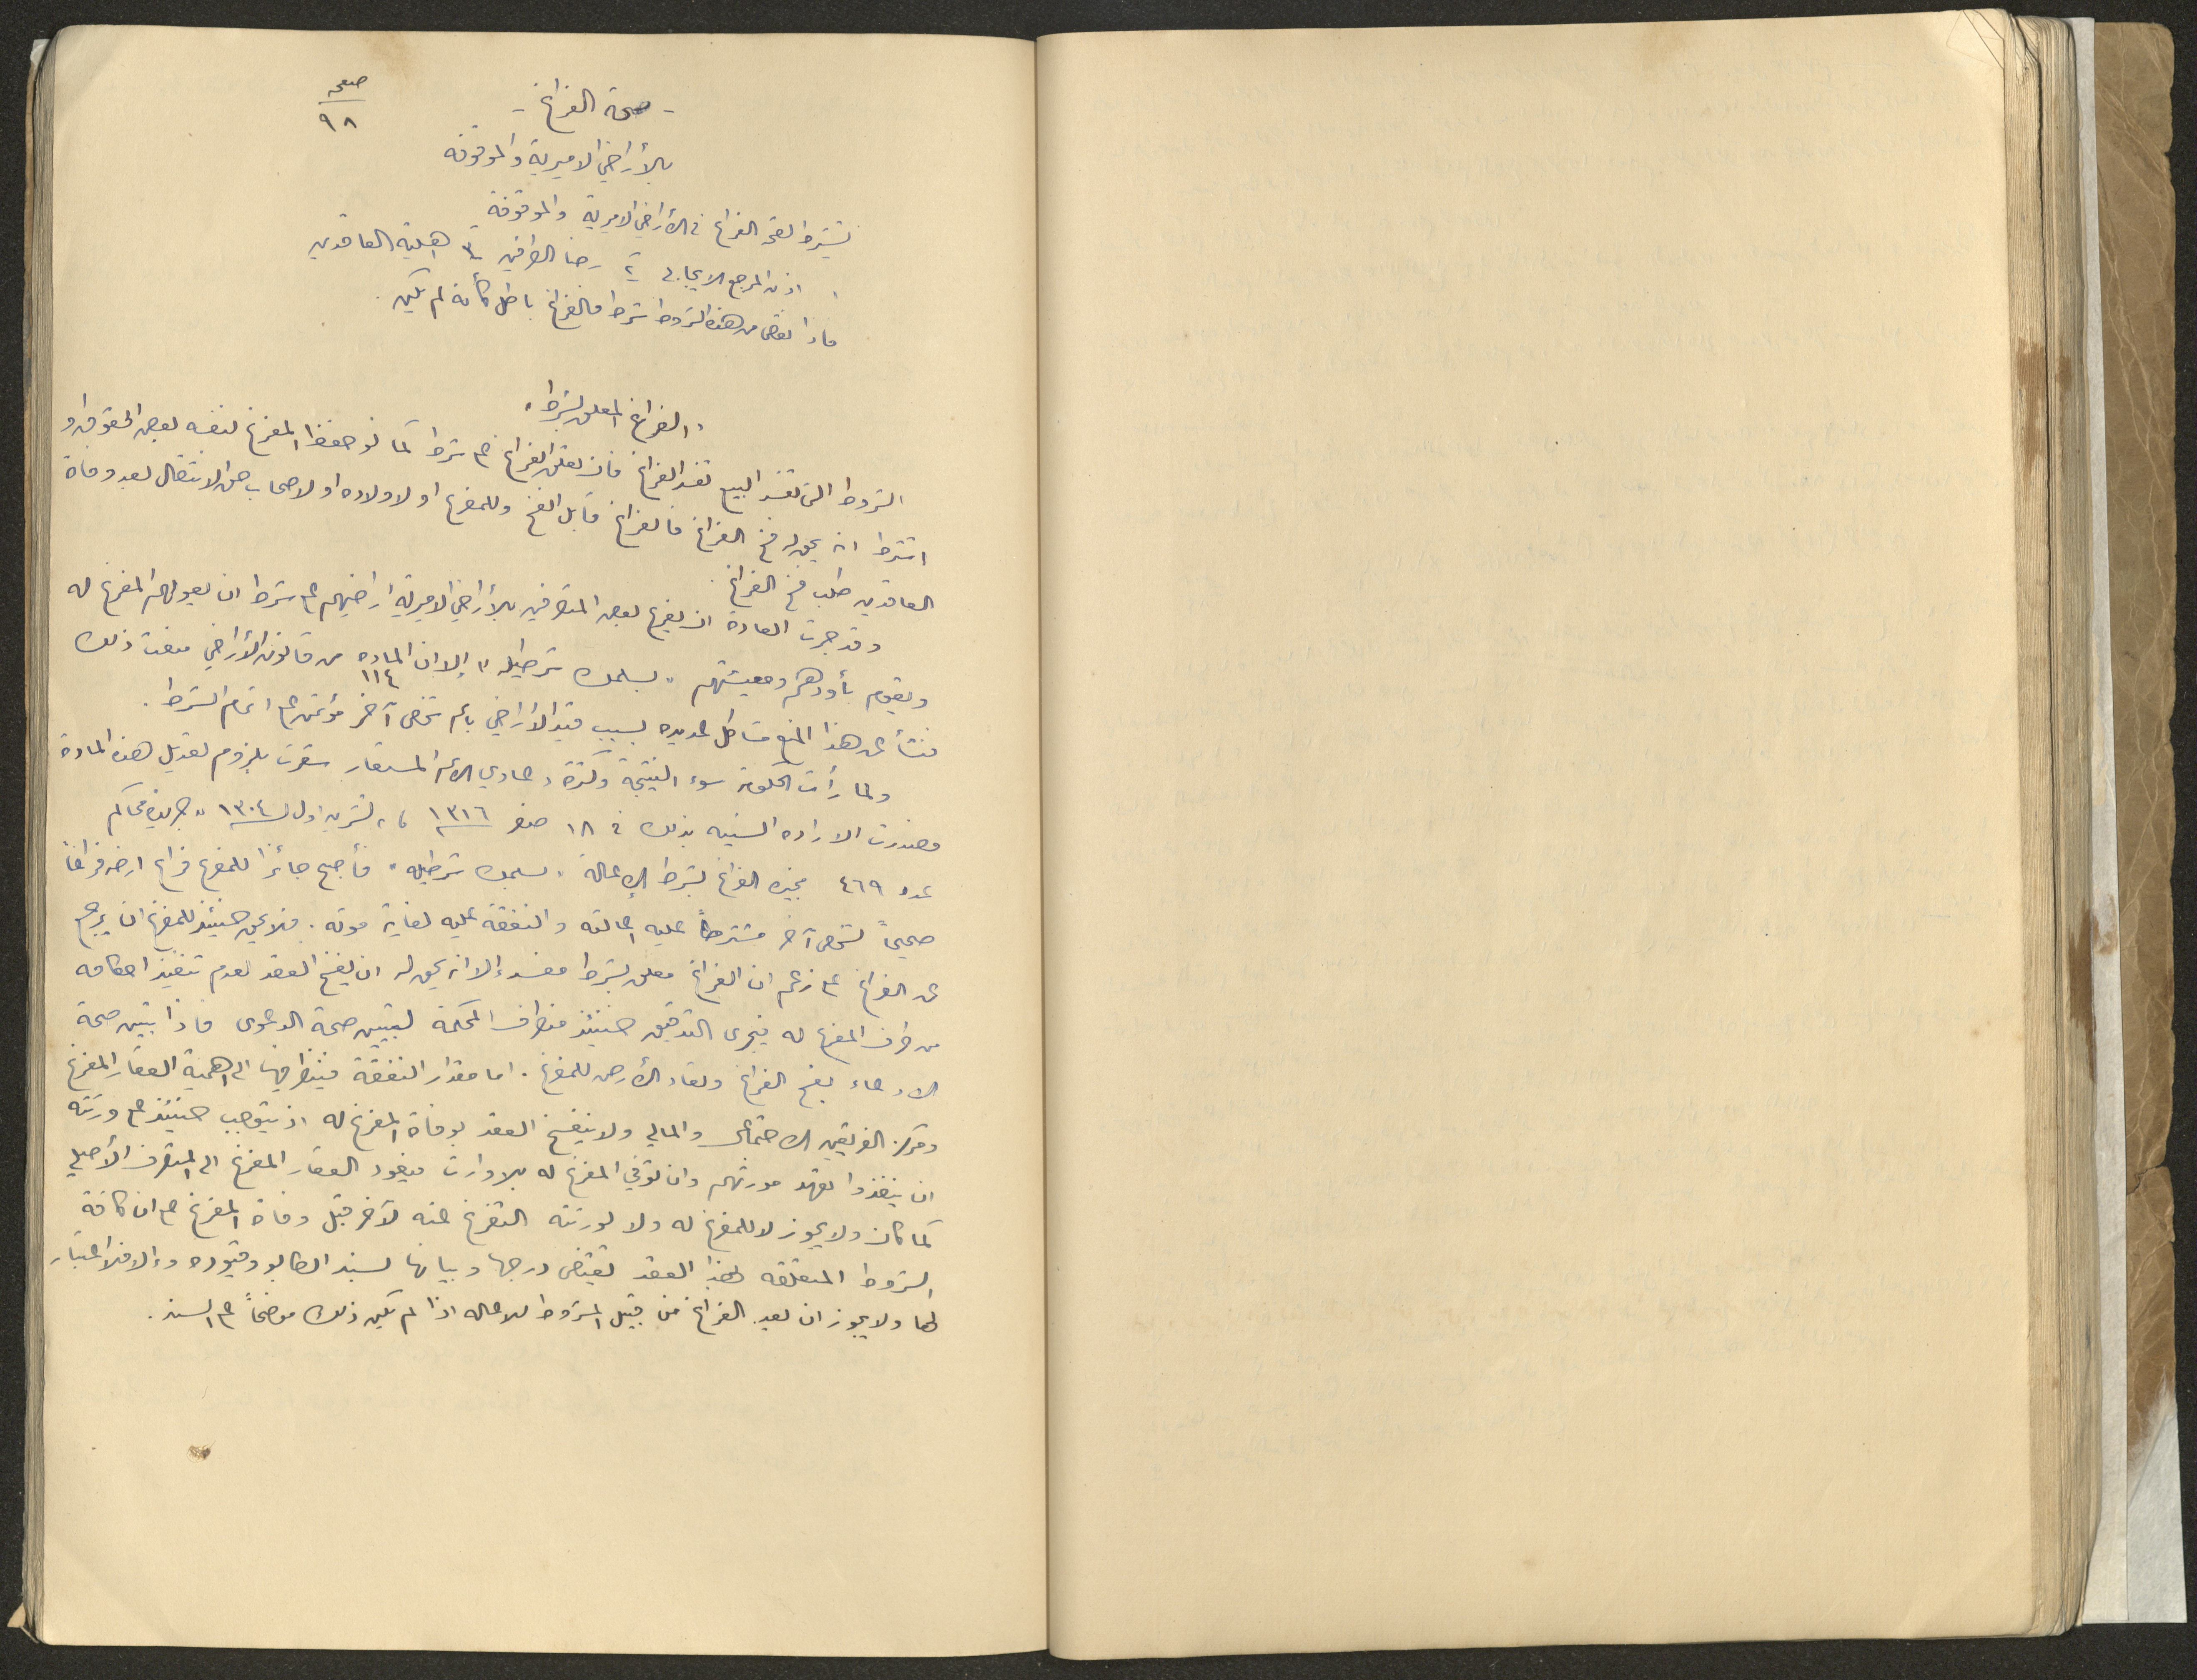 صفحه
٩٨
- صحة الفراغ -
بالأراضي الاميرية والموقوفه
يشترط لصحة الفراغ في الأراضي الاميرية والموقوفة
١ اذن المرجع الايجابي ٢ رضا الطرفين ٣ اهلية العاقدين
فاذا نقص من هذه الشروط شرط فالفراغ باطل كأنه لم يكن .
" الفراغ المعلق بشرط "
الشروط التي تفسد البيع تفسد الفراغ فان تعلق الفراغ على شرط كما لو حفظ المفرغ لنفسه بعض الحقوق او
اشترط انه يحق له فسخ الفراغ فالفراغ قابل الفسخ وللمفرغ او لاولاده او لاصحاب حق الانتقال بعد وفاة
العاقدين طلب فسخ الفراغ .
وقد جرت العادة ان يفرغ بعض المتصرفين بالأراضي الاميرية اراضيهم على شرط ان يعولهم المفرغ له
ويقوم بأودهم ومعيشتهم " بسلمك شرطيله " إلا ان الماده ١١٤ من قانون الأراضي منعت ذلك
فنشأ عن هذا المنع مشاكل عديده بسبب قيد الأراضي باسم شخص آخر مؤتمن على اتمام الشرط .
ولما رأت الحكومة سوء النتيجة وكثرة دعاوي الاسم المستعار شعرت بلزوم تعديل هذه المادة
فصدرت الاراده السنيه بذلك في ١٨ صفر سنة ١٣١٦ تشرين اول سنة ١٣٠٤ " جريدة محاكم
عدد ٤٦٩ تجيز الفراغ بشرط الإعالة " بسلمك شرطيله " فأصبح جائزا للمفرغ فراغ ارضه فراغاً
صحيحاً لشخص آخر مشترطاً عليه إعالته والنفقة عليه لغاية موته . فلا يحق حينئذ للمفرغ ان يرجع
عن الفراغ على زعم ان الفراغ معلق بشرط مفسد إلا انه يحق له ان يفسخ العقد لعدم تنفيذ احكامه
من طرف المفرغ له فيجرى التدقيق حينئذ من طرف المحكمة ليتبين صحة الدعوى فاذا تبين صحة
الادعاء يفسخ الفراغ وتعاد الأرض للمفرغ . اما مقدار النفقة فينظر فيها الى اهمية العقار المفرغ
ومركز الفريقين الاجتماعي والمالي ولا ينفسخ العقد بوفاة المفرغ له اذ يتوجب حينئذ على ورثته
ان ينفذوا تعهد مورثهم وان توفي المفرغ له بلا وارث فيعود العقار المفرغ الى المتصرف الأصلي
كما كان ولا يجوز لا للمفرغ له ولا لورثته التفرغ عنه لآخر قبل وفاة المفرغ على ان كافة
الشروط المتعلقه بهذا العقد يقتضى درجها وبيانها بسند الطابو وقيوده وإلا فلا اعتبار
لها ولا يجوز ان يعد الفراغ من قبيل المشروط للاعاله اذا لم يكن ذلك موضحاً على السند .